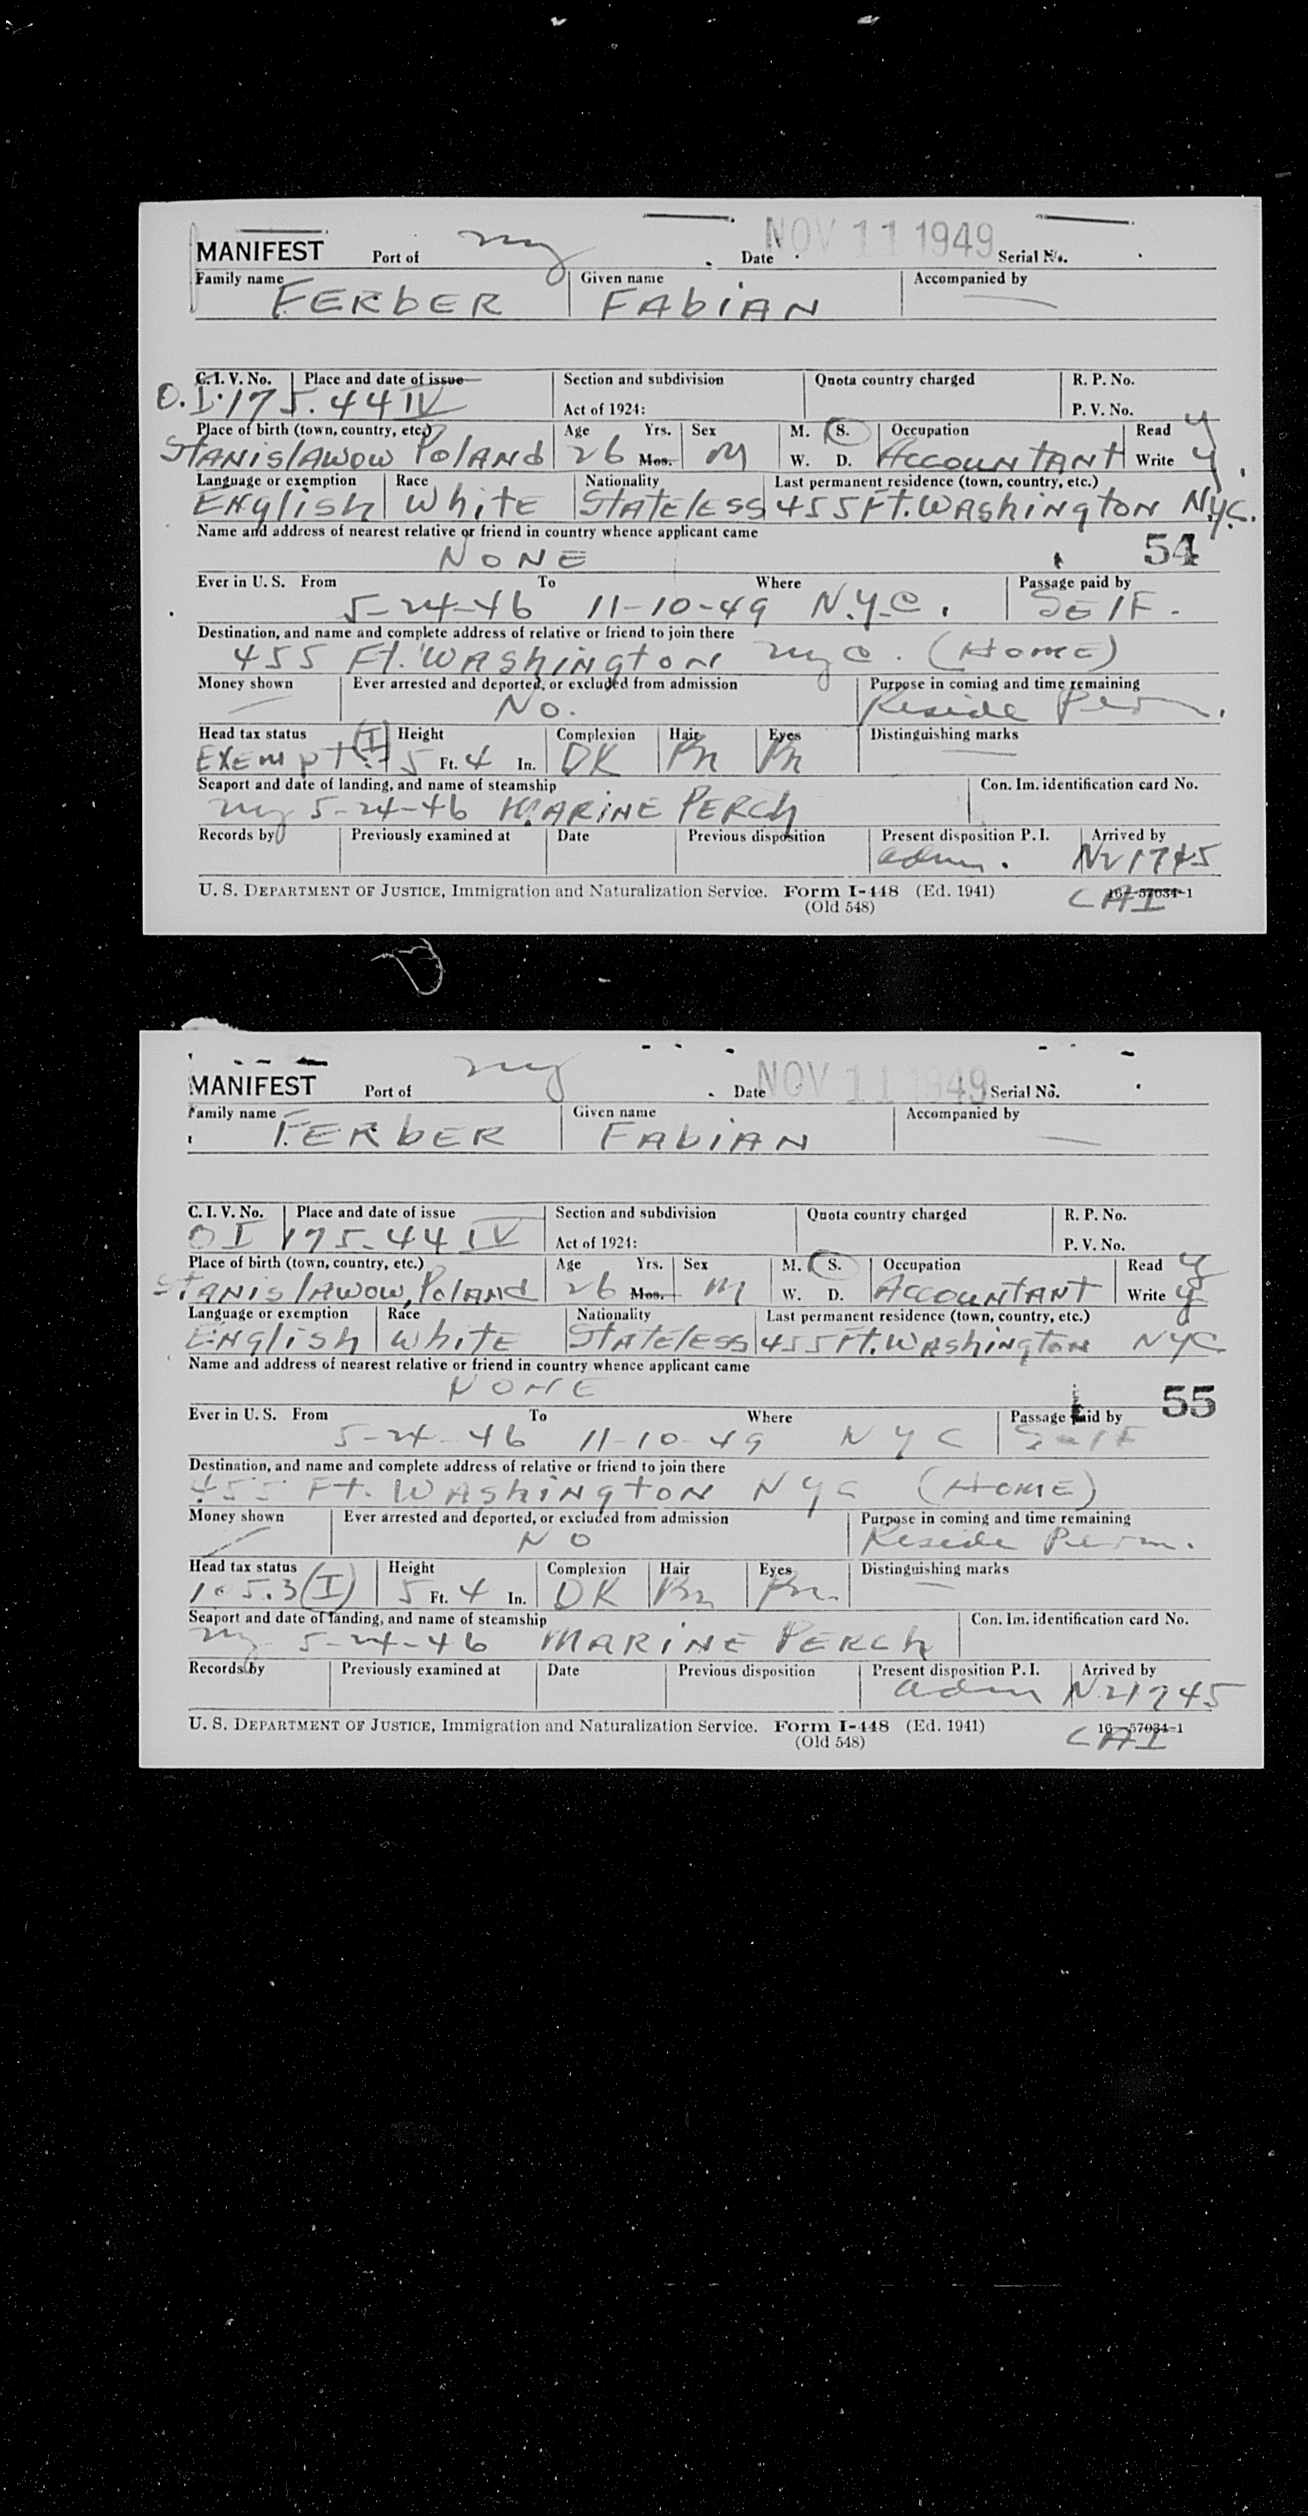 MANIFEST Port of ny Date NOV 11 1949 Serial No.
Family name FERbER Given name FAbiAN Accompanied by —
C. I. V. No. Place and date of issue Section and subdivision Quota country charged R. P. No.
O.I.175.44 IV Act of 1924: P. V. No.
Place of birth (town, country, etc.) Age Yrs. Sex M. S. Occupation Read y
STANislAwow PolAND 26 Mos. M W. D. AccounTANT Write y
Language or exemption Race Nationality Last permanent residence (town, country, etc.)
ENglish WhiTE STATElESS 455 Ft. WAShiNgtoN N.y.C.
Name and address of nearest relative or friend in country whence applicant came
NONE 54
Ever in U. S. From To Where Passage paid by
5-24-46 11-10-49 N.y.C. SElF.
Destination, and name and complete address of relative or friend to join there
455 Ft. WAShiNgtoN nyc. (HomE)
Money shown Ever arrested and deported, or excluded from admission Purpose in coming and time remaining
— No. Reside Perm.
Head tax status Height Complexion Hair Eyes Distinguishing marks
ExEmpt. (I) 5 Ft. 4 In. DK Bn Bn —
Seaport and date of landing, and name of steamship Con. Im. identification card No.
ny 5-24-46 MARiNE PERCh
Records by Previously examined at Date Previous disposition Present disposition P. I. Arrived by
adm. N21745
U. S. DEPARTMENT OF JUSTICE, Immigration and Naturalization Service. Form I-448 (Ed. 1941) 16—57034-1
(Old 548) CAI
MANIFEST Port of ny Date NOV 11 1949 Serial No.
Family name FERbER Given name FAbiAN Accompanied by —
C. I. V. No. Place and date of issue Section and subdivision Quota country charged R. P. No.
OI 175-44 IV Act of 1924: P. V. No.
Place of birth (town, country, etc.) Age Yrs. Sex M. S. Occupation Read y
STANislAwow, PolANd 26 Mos. M W. D. AccounTANT Write y
Language or exemption Race Nationality Last permanent residence (town, country, etc.)
ENglish whiTE STATElESS 455 Ft. WAShiNgtoN NyC
Name and address of nearest relative or friend in country whence applicant came
NONE 55
Ever in U. S. From To Where Passage paid by
5-24-46 11-10-49 NyC SElF
Destination, and name and complete address of relative or friend to join there
455 Ft. WAShiNgtoN NyC (HomE)
Money shown Ever arrested and deported, or excluded from admission Purpose in coming and time remaining
— NO Reside Perm.
Head tax status Height Complexion Hair Eyes Distinguishing marks
105.3 (I) 5 Ft. 4 In. DK Bn Bn. —
Seaport and date of landing, and name of steamship Con. Im. identification card No.
ny 5-24-46 MARiNE PERCh
Records by Previously examined at Date Previous disposition Present disposition P. I. Arrived by
adm N21745
U. S. DEPARTMENT OF JUSTICE, Immigration and Naturalization Service. Form I-448 (Ed. 1941) 16—57034-1
(Old 548) CAI